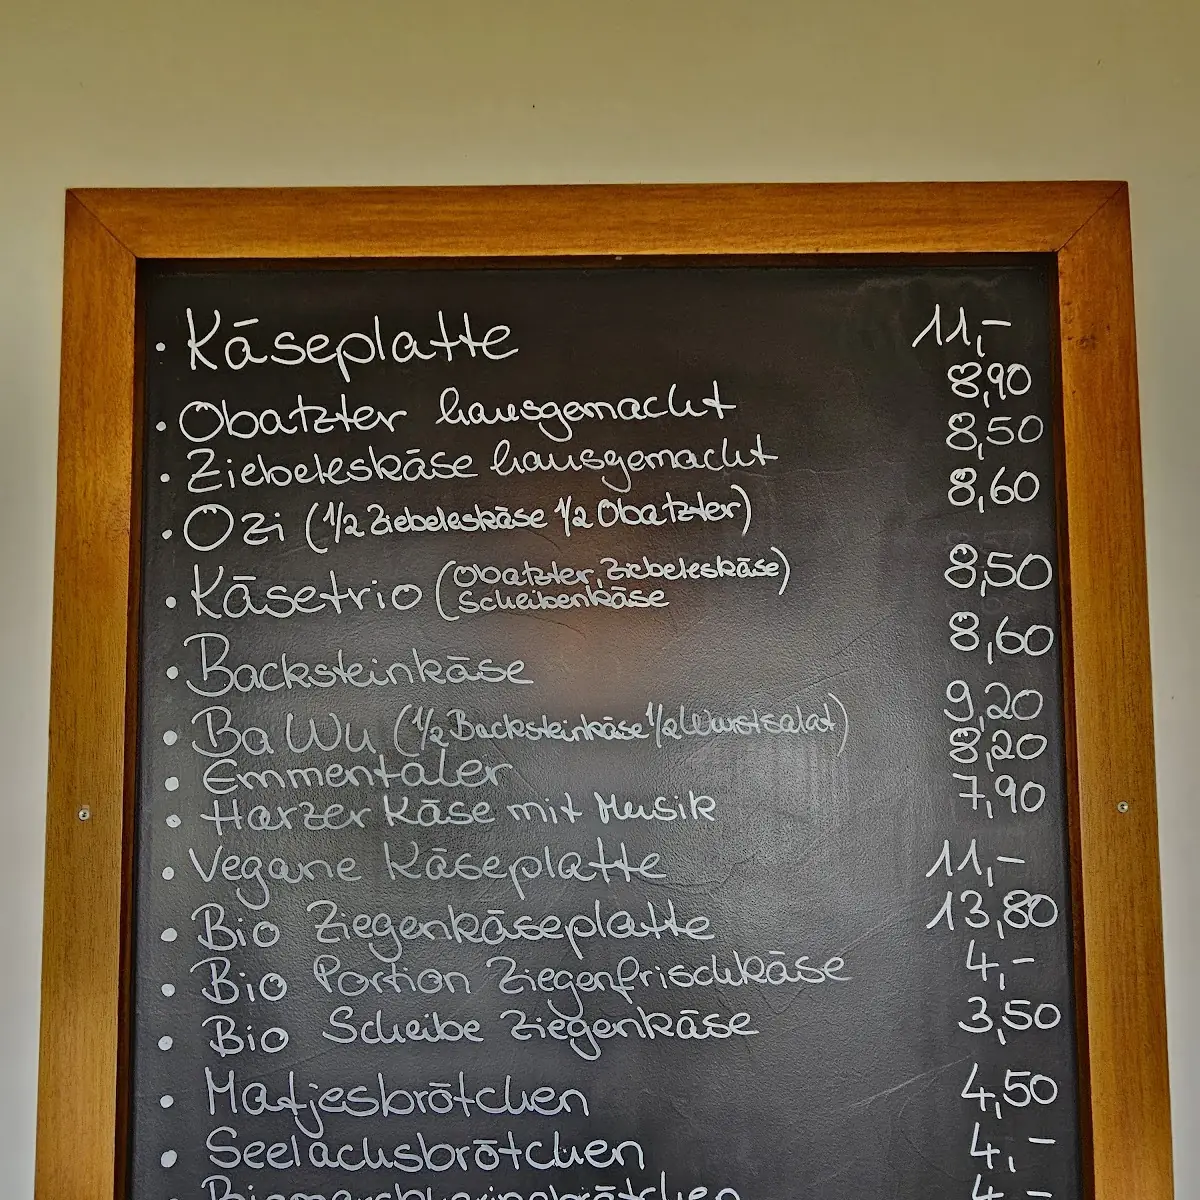 • Käseplatte 11,-
• Obatzter hausgemacht 8,90
• Ziebeleskäse hausgemacht 8,50
• Ozi (1/2 Ziebeleskäse 1/2 Obatzter) 8,60
• Käsetrio (Obatzter, Ziebeleskäse) 8,50
Scheibenkäse
• Backsteinkäse 8,60
• Ba Wu (1/2 Backsteinkäse 1/2 Wurstsalat) 9,20
• Emmentaler 8,20
• Harzer Käse mit Musik 7,90
• Vegane Käseplatte 11,-
• Bio Ziegenkäseplatte 13,80
• Bio Portion Ziegenfrischkäse 4,-
• Bio Scheibe Ziegenkäse 3,50
• Matjesbrötchen 4,50
• Seelachsbrötchen 4,-
Bismarckheringbrötchen 4,-